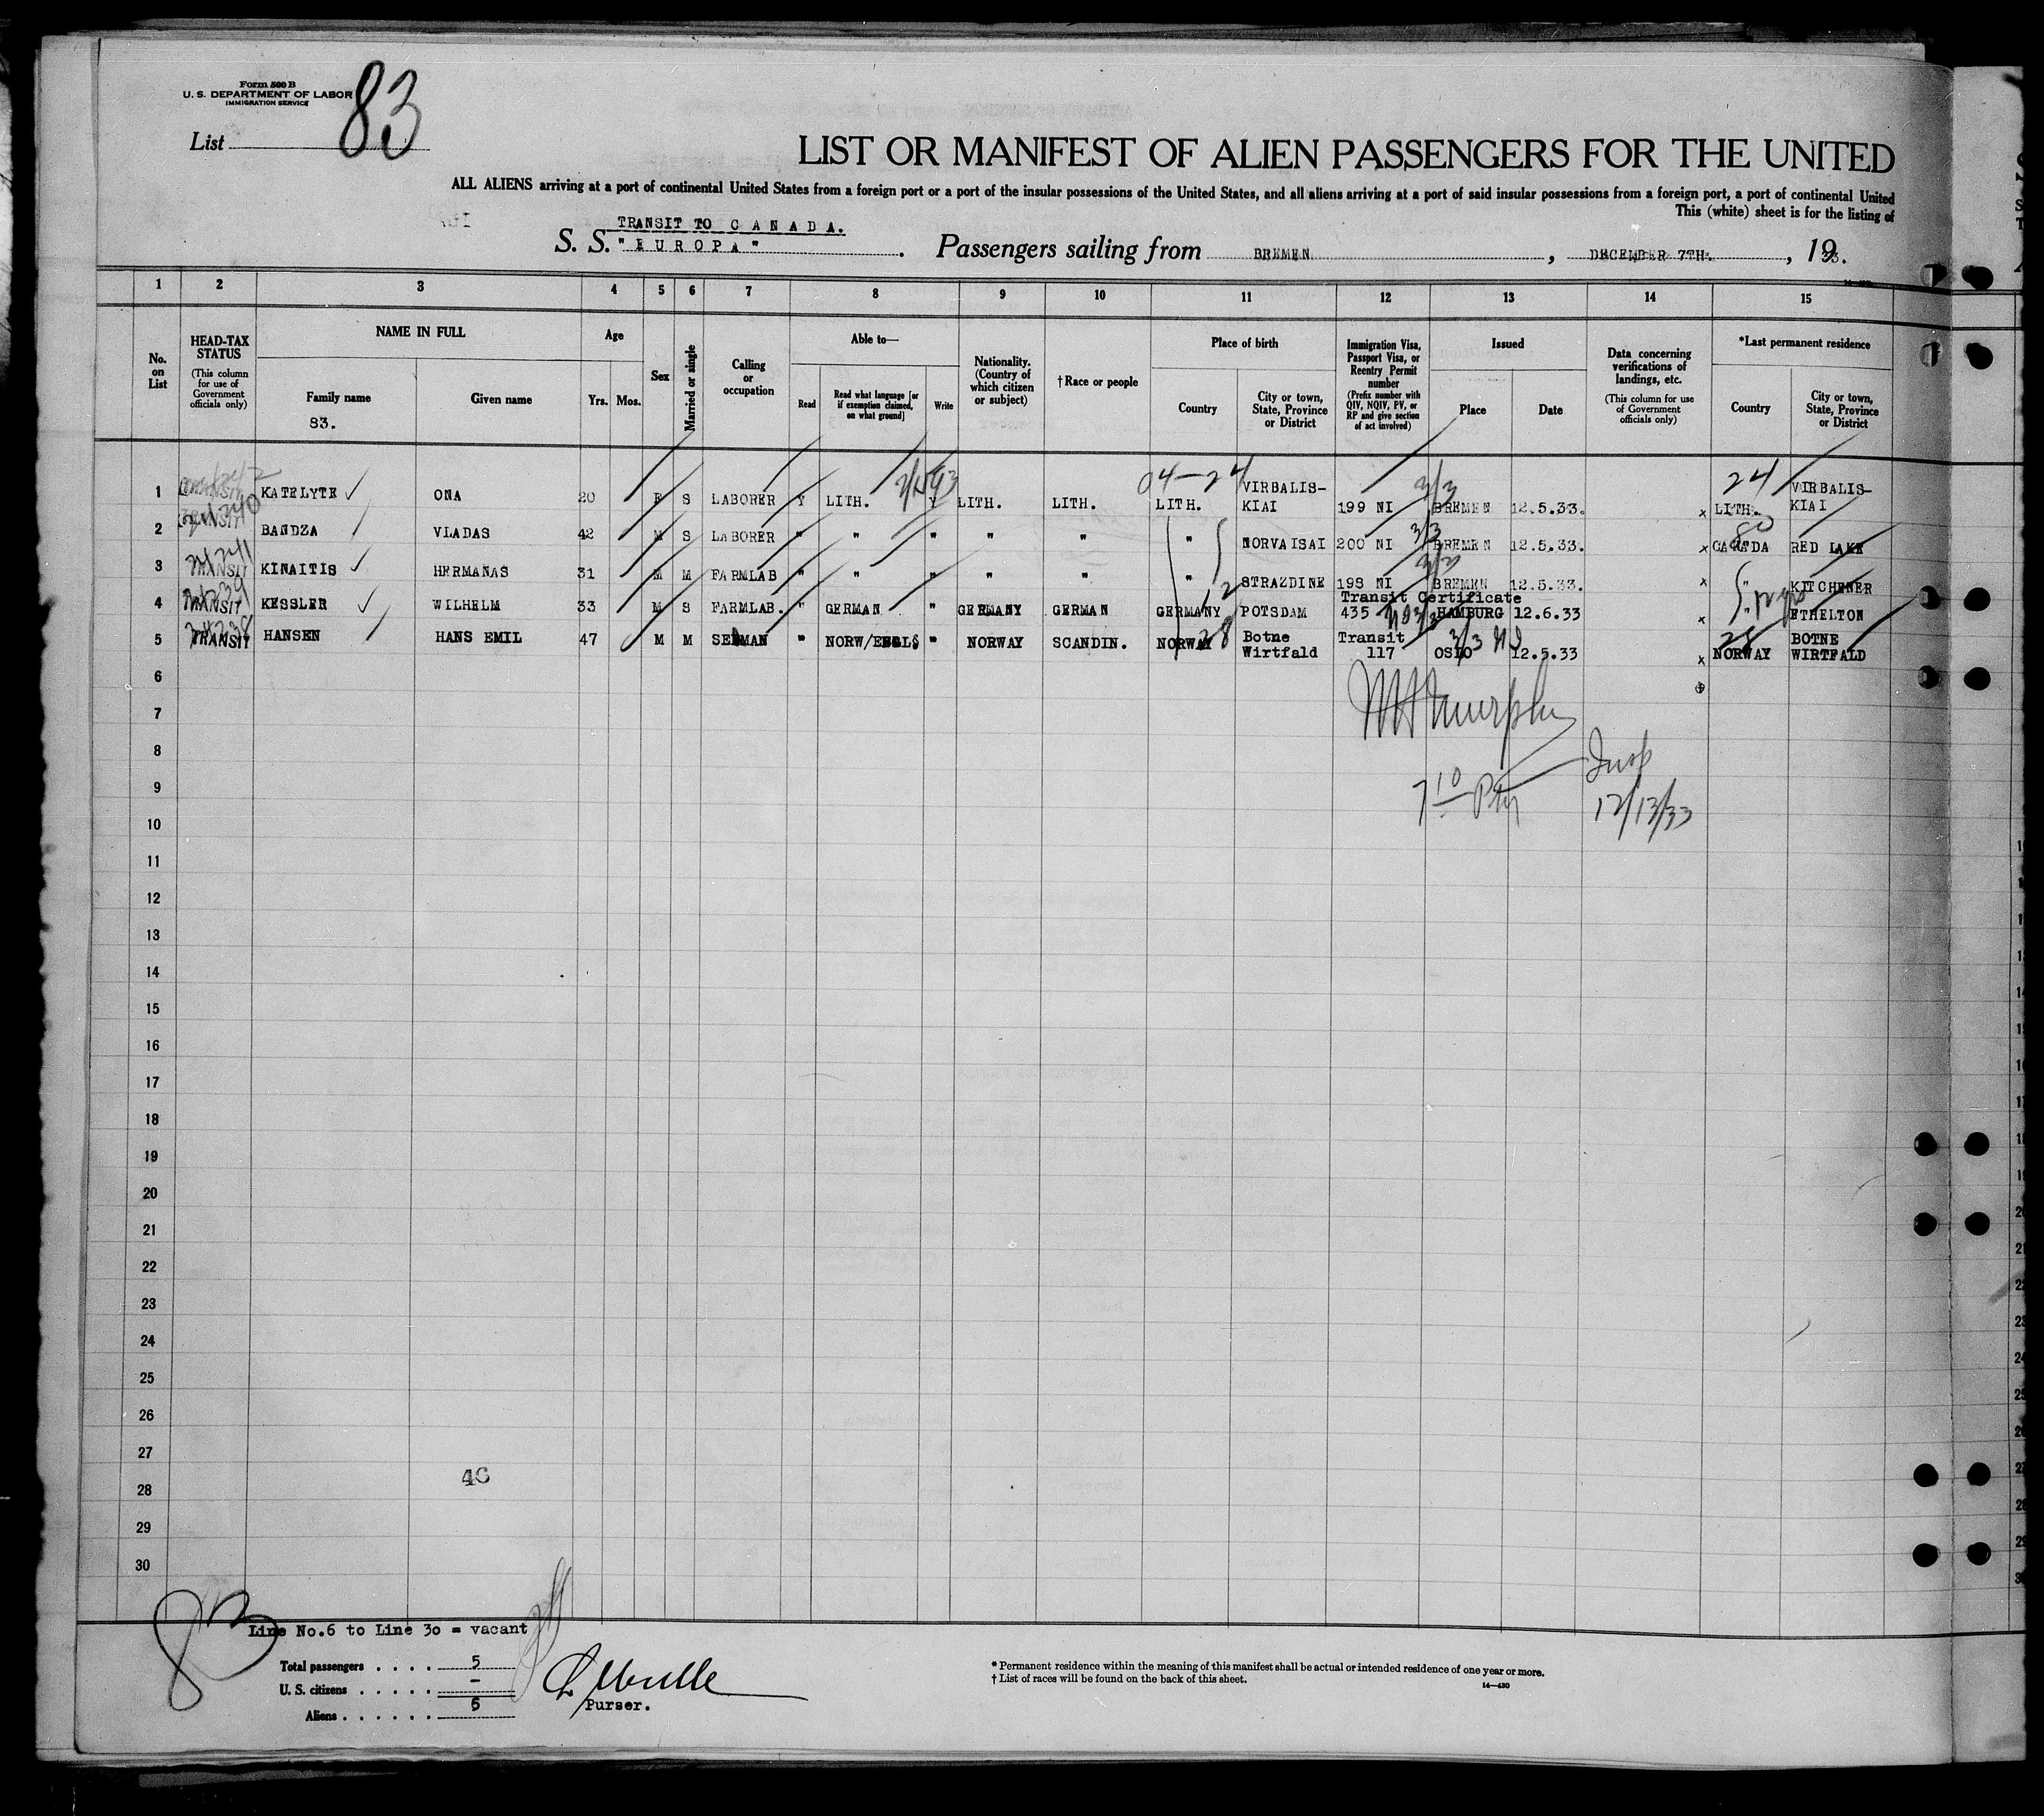 Form 500 B
U. S. DEPARTMENT OF LABOR
IMMIGRATION SERVICE
List 83
LIST OR MANIFEST OF ALIEN PASSENGERS FOR THE UNITED
ALL ALIENS arriving at a port of continental United States from a foreign port or a port of the insular possessions of the United States, and all aliens arriving at a port of said insular possessions from a foreign port, a port of continental United
This (white) sheet is for the listing of
TRANSIT TO CANADA.
S. S. "EUROPA". Passengers sailing from BREMEN, DECEMBER 7TH., 1933.
1 2 3 4 5 6 7 8 9 10 11 12 13 14 15
No. on List
HEAD-TAX STATUS
(This column for use of Government officials only)
NAME IN FULL
Family name
83.
Given name
Age
Yrs. Mos.
Sex
Married or single
Calling or occupation
Able to—
Read
Read what language [or if exemption claimed, on what ground]
Write
Nationality. (Country of which citizen or subject)
† Race or people
Place of birth
Country
City or town, State, Province or District
Immigration Visa, Passport Visa, or Reentry Permit number
(Prefix number with QIV, NQIV, PV, or RP and give section of act involved)
Issued
Place
Date
Data concerning verifications of landings, etc.
(This column for use of Government officials only)
*Last permanent residence
Country
City or town, State, Province or District
04-24 3/3 24
1 TRANSIT KATELYTE ONA 20 F S LABORER Y LITH. Y LITH. LITH. LITH. VIRBALIS-KIAI 199 NI BREMEN 12.5.33. x LITH. VIRBALIS-KIAI
2 TRANSIT BANDZA VLADAS 42 M S LABORER " " " " " " NORVAISAI 200 NI 3/3 BREMEN 12.5.33. x CANADA RED LAKE
3 TRANSIT KINAITIS HERMANAS 31 M M FARMLAB " " " " " " STRAZDINE 198 NI BREMEN 12.5.33. x " KITCHENER
4 TRANSIT KESSLER WILHELM 33 M S FARMLAB. " GERMAN " GERMANY GERMAN GERMANY POTSDAM Transit Certificate 435 HAMBURG 12.6.33 x " ETHELTON
5 TRANSIT HANSEN HANS EMIL 47 M M SEEMAN " NORW/ENGLS " NORWAY SCANDIN. NORWAY Botne Wirtfald Transit 117 3/3 OSLO 12.5.33 x NORWAY BOTNE WIRTFALD
6
7
8
9
10
11
12
13
14
15
16
17
18
19
20
21
22
23
24
25
26
27
28
29
30
Murphy
Insp
12/13/33
46
83
Line No.6 to Line 30 = vacant
Total passengers . . . . 5
U. S. citizens . . . . . -
Aliens . . . . . . 5
Purser.
* Permanent residence within the meaning of this manifest shall be actual or intended residence of one year or more.
† List of races will be found on the back of this sheet.
14—430